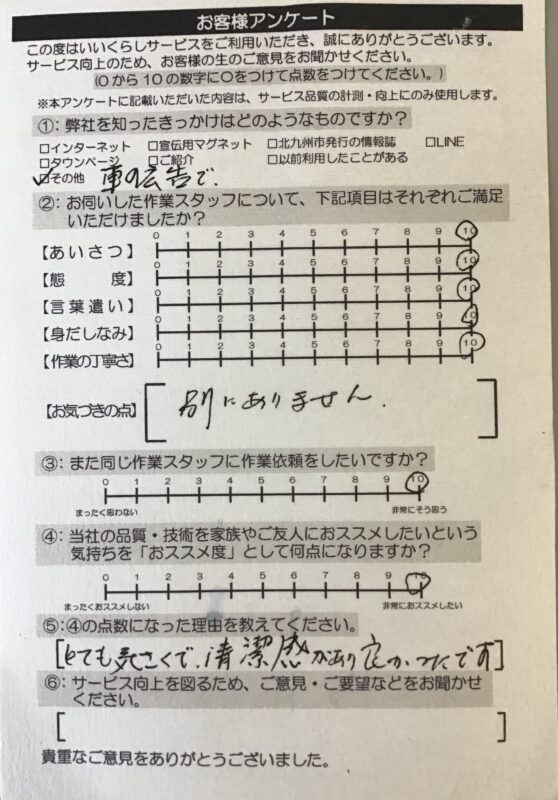 お客様アンケート
この度はいいくらしサービスをご利用いただき、誠にありがとうございます。
サービス向上のため、お客様の生のご意見をお聞かせください。
(0から10の数字に○をつけて点数をつけてください。)
※本アンケートに記載いただいた内容は、サービス品質の計測・向上にのみ使用します。
①：弊社を知ったきっかけはどのようなものですか？
□インターネット □宣伝用マグネット □北九州市発行の情報誌 □LINE
□タウンページ □ご紹介 □以前利用したことがある
□その他 車の広告で、
②：お伺いした作業スタッフについて、下記項目はそれぞれご満足
いただけましたか？
0 1 2 3 4 5 6 7 8 9 10
【あいさつ】
0 1 2 3 4 5 6 7 8 9 10
【態 度】
0 1 2 3 4 5 6 7 8 9 10
【言葉遣い】
0 1 2 3 4 5 6 7 8 9 10
【身だしなみ】
0 1 2 3 4 5 6 7 8 9 10
【作業の丁寧さ】
【お気づきの点】 別にありません.
③：また同じ作業スタッフに作業依頼をしたいですか？
0 1 2 3 4 5 6 7 8 9 10
まったく思わない 非常にそう思う
④：当社の品質・技術を家族やご友人におススメしたいという
気持ちを「おススメ度」として何点になりますか？
0 1 2 3 4 5 6 7 8 9 10
まったくおススメしない 非常におススメしたい
⑤：④の点数になった理由を教えてください。
[とても気さくで、清潔感があり良かったです]
⑥：サービス向上を図るため、ご意見・ご要望などをお聞かせ
ください。
貴重なご意見をありがとうございました。